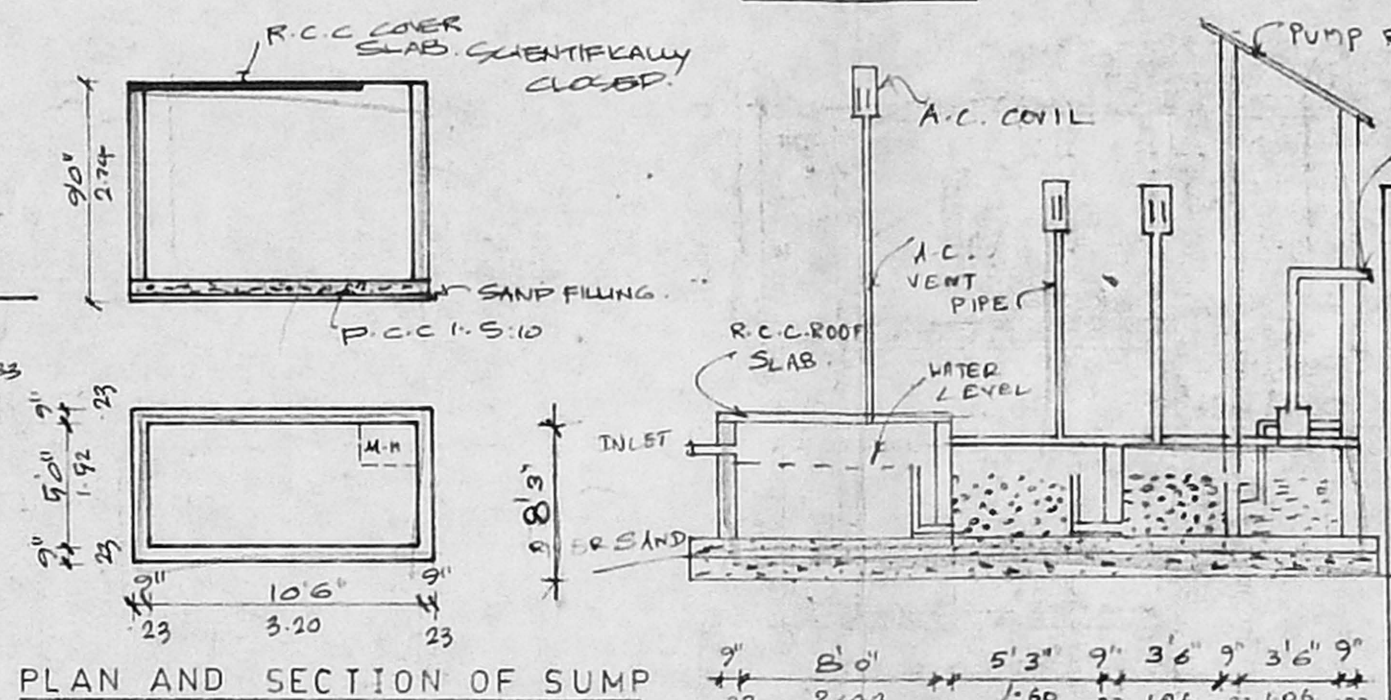 R.C.C COVER
SLAB. SCIENTIFIKALLY
CLOSED.
9'0"
2.74
SAND FILLING.
P.C.C 1:5:10
9"
23
5'0"
1.92
9"
23
M.H
9"
10'6"
9"
23
3.20
23
PLAN AND SECTION OF SUMP
PUMP
A.C. COVIL
A.C.
VENT
PIPE
R.C.C. ROOF
SLAB.
WATER
LEVEL
INLET
8'3"
SAND
9"
8'0"
5'3"
9"
3'6"
9"
3'6"
9"